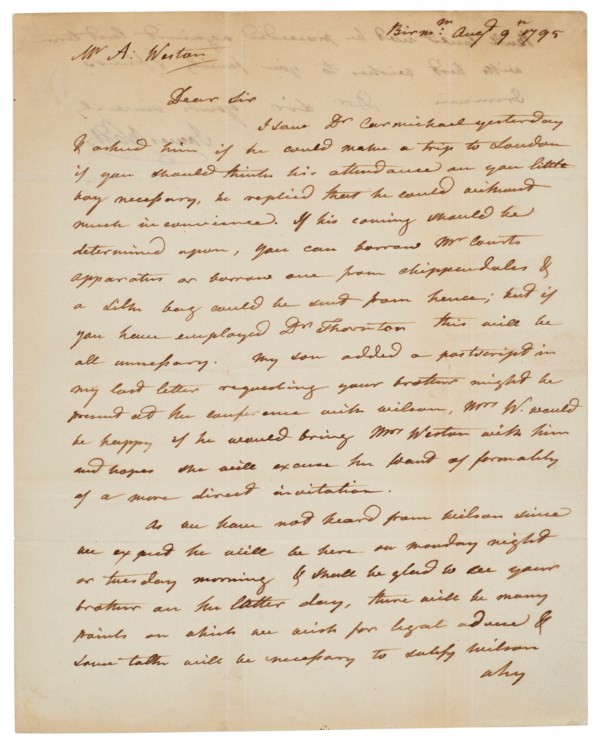 Birm.m Augt 9th 1795
Mr A: Weston
Dear Sir
I saw Dr Carmichael yesterday
& asked him if he could make a trip to London
if you should think his attendance on your little
boy necessary, he replied that he could without
much inconvience. If his coming should be
determined upon, you can borrow Mr Courts
apparatus or borrow one from Chippendales &
a silk bag could be sent from hence; but if
you have employed Dr Thornton this will be
all unnessary. My son added a postscript in
my last letter requesting your brother might be
present at the conference with Wilson, Mrs W. would
be happy if he would bring Mrs Weston with him
and hopes she will excuse her want of formality
of a more direct invitation.
As we have not heard from Wilson since
we expect he will be here on monday night
or tuesday morning & shall be glad to see your
brother on the latter day, there will be many
points on which we wish for legal advice &
some talk will be necessary to satisfy Wilson
why